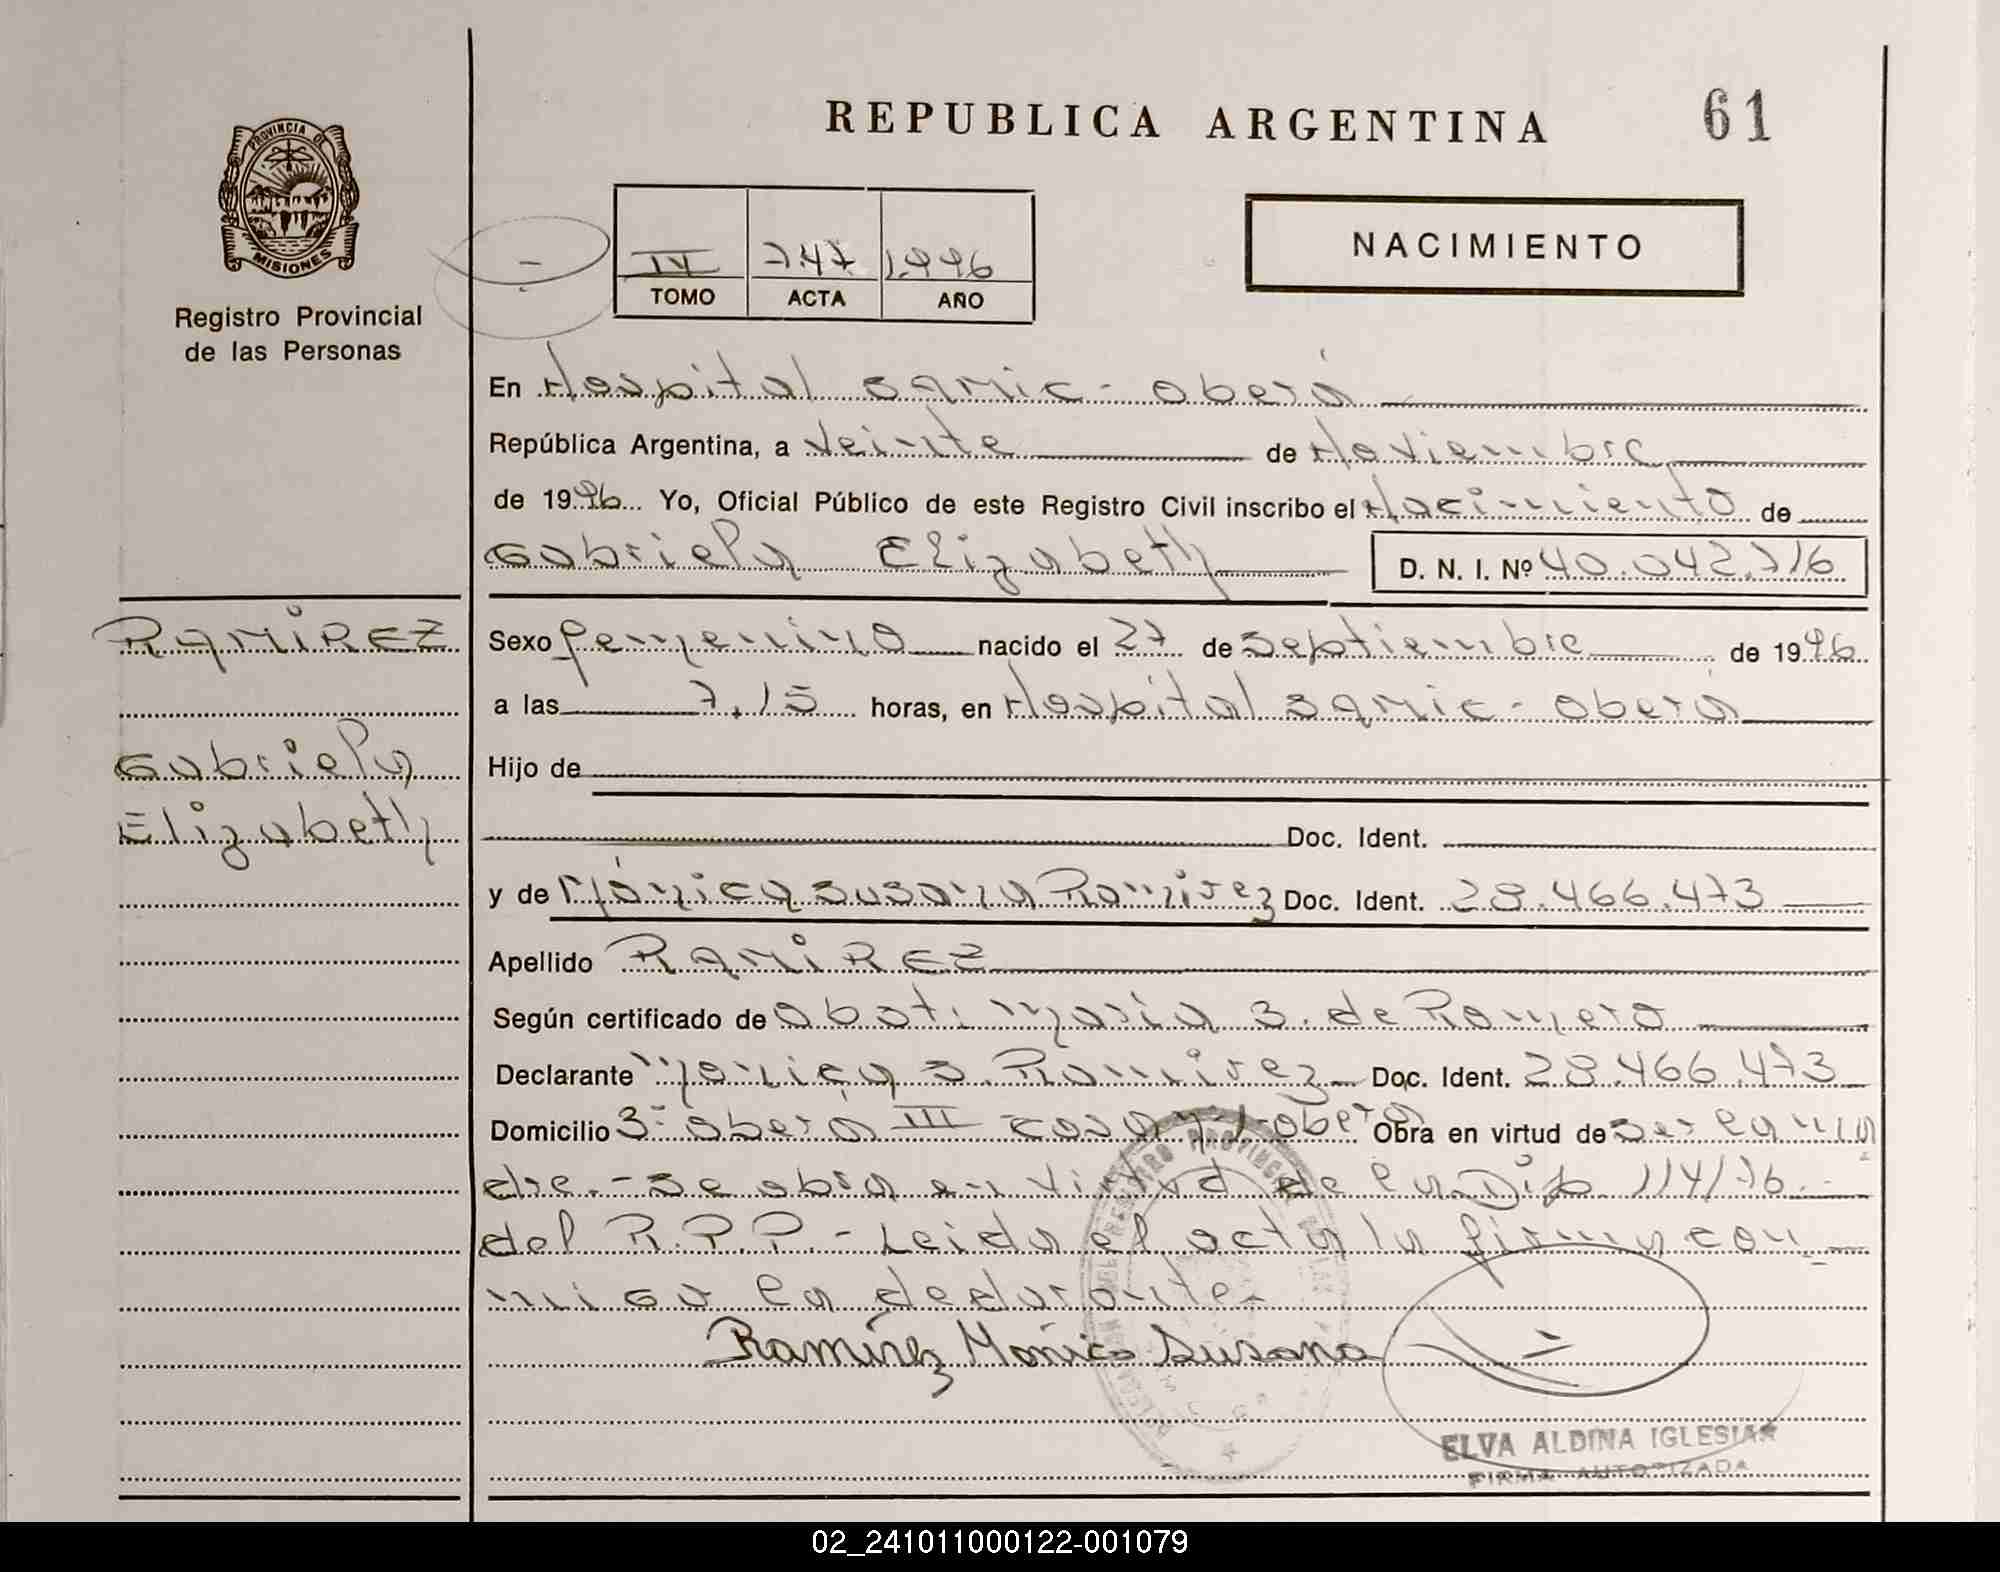 REPUBLICA ARGENTINA
61
PROVINCIA DE
MISIONES
Registro Provincial
de las Personas
IV 747 1.996
TOMO ACTA AÑO
NACIMIENTO
En Hospital Samic - Oberá
República Argentina, a Veinte de Noviembre
de 1996 Yo, Oficial Público de este Registro Civil inscribo el Nacimiento de
Gabriela Elizabeth D. N. I. Nº 40.042.716
RAMIREZ
Gabriela
Elizabeth
Sexo femenino nacido el 27 de Septiembre de 1996
a las 7,15 horas, en Hospital Samic - Oberá
Hijo de
Doc. Ident.
y de Mónica Susana Ramirez Doc. Ident. 28.466.473
Apellido RAMIREZ
Según certificado de Obst. María S. de Romero
Declarante Monica S. Ramirez Doc. Ident. 28.466.473
Domicilio Bº Oberá III casa Oberá Obra en virtud de Ser la ma
dre.- Se obra en virtud de la Disp. 114/76.-
del R.P.P.- Leida el acta la firma con
migo la declarante.
Ramírez Mónica Susana
ELVA ALDINA IGLESIAS
FIRMA AUTORIZADA
02_241011000122-001079